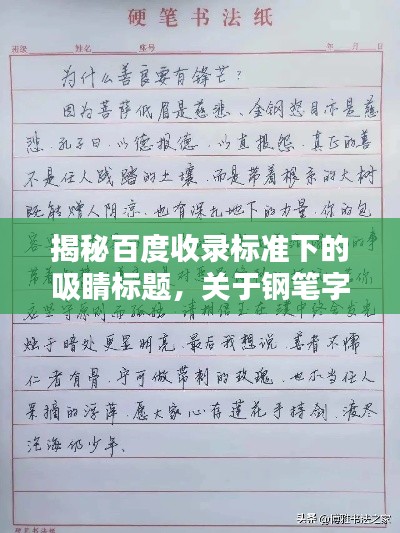 硬笔书法纸
班级 姓名 座号 年 月 日
为什么善良要有锋芒?
因为菩萨低眉是慈悲、金钢怒目亦是慈
悲.孔子曰,以德报德,以直报怨.真正的善
不是任人践踏的土壤.而是带着根系的大树
既能赠人阴凉,也有深扎地下的力量.你的包
揭秘百度收录标准下的
吸睛标题,关于钢笔字
烛于暗处更显明亮.最后我想说,善者不懦
仁者有骨.宁可做带刺的玫瑰.也不当任人
采摘的浮萍.愿大家心存莲花手持剑.渡尽
沧海仍少年.
硬笔书法纸
头条 @博雅书法之家